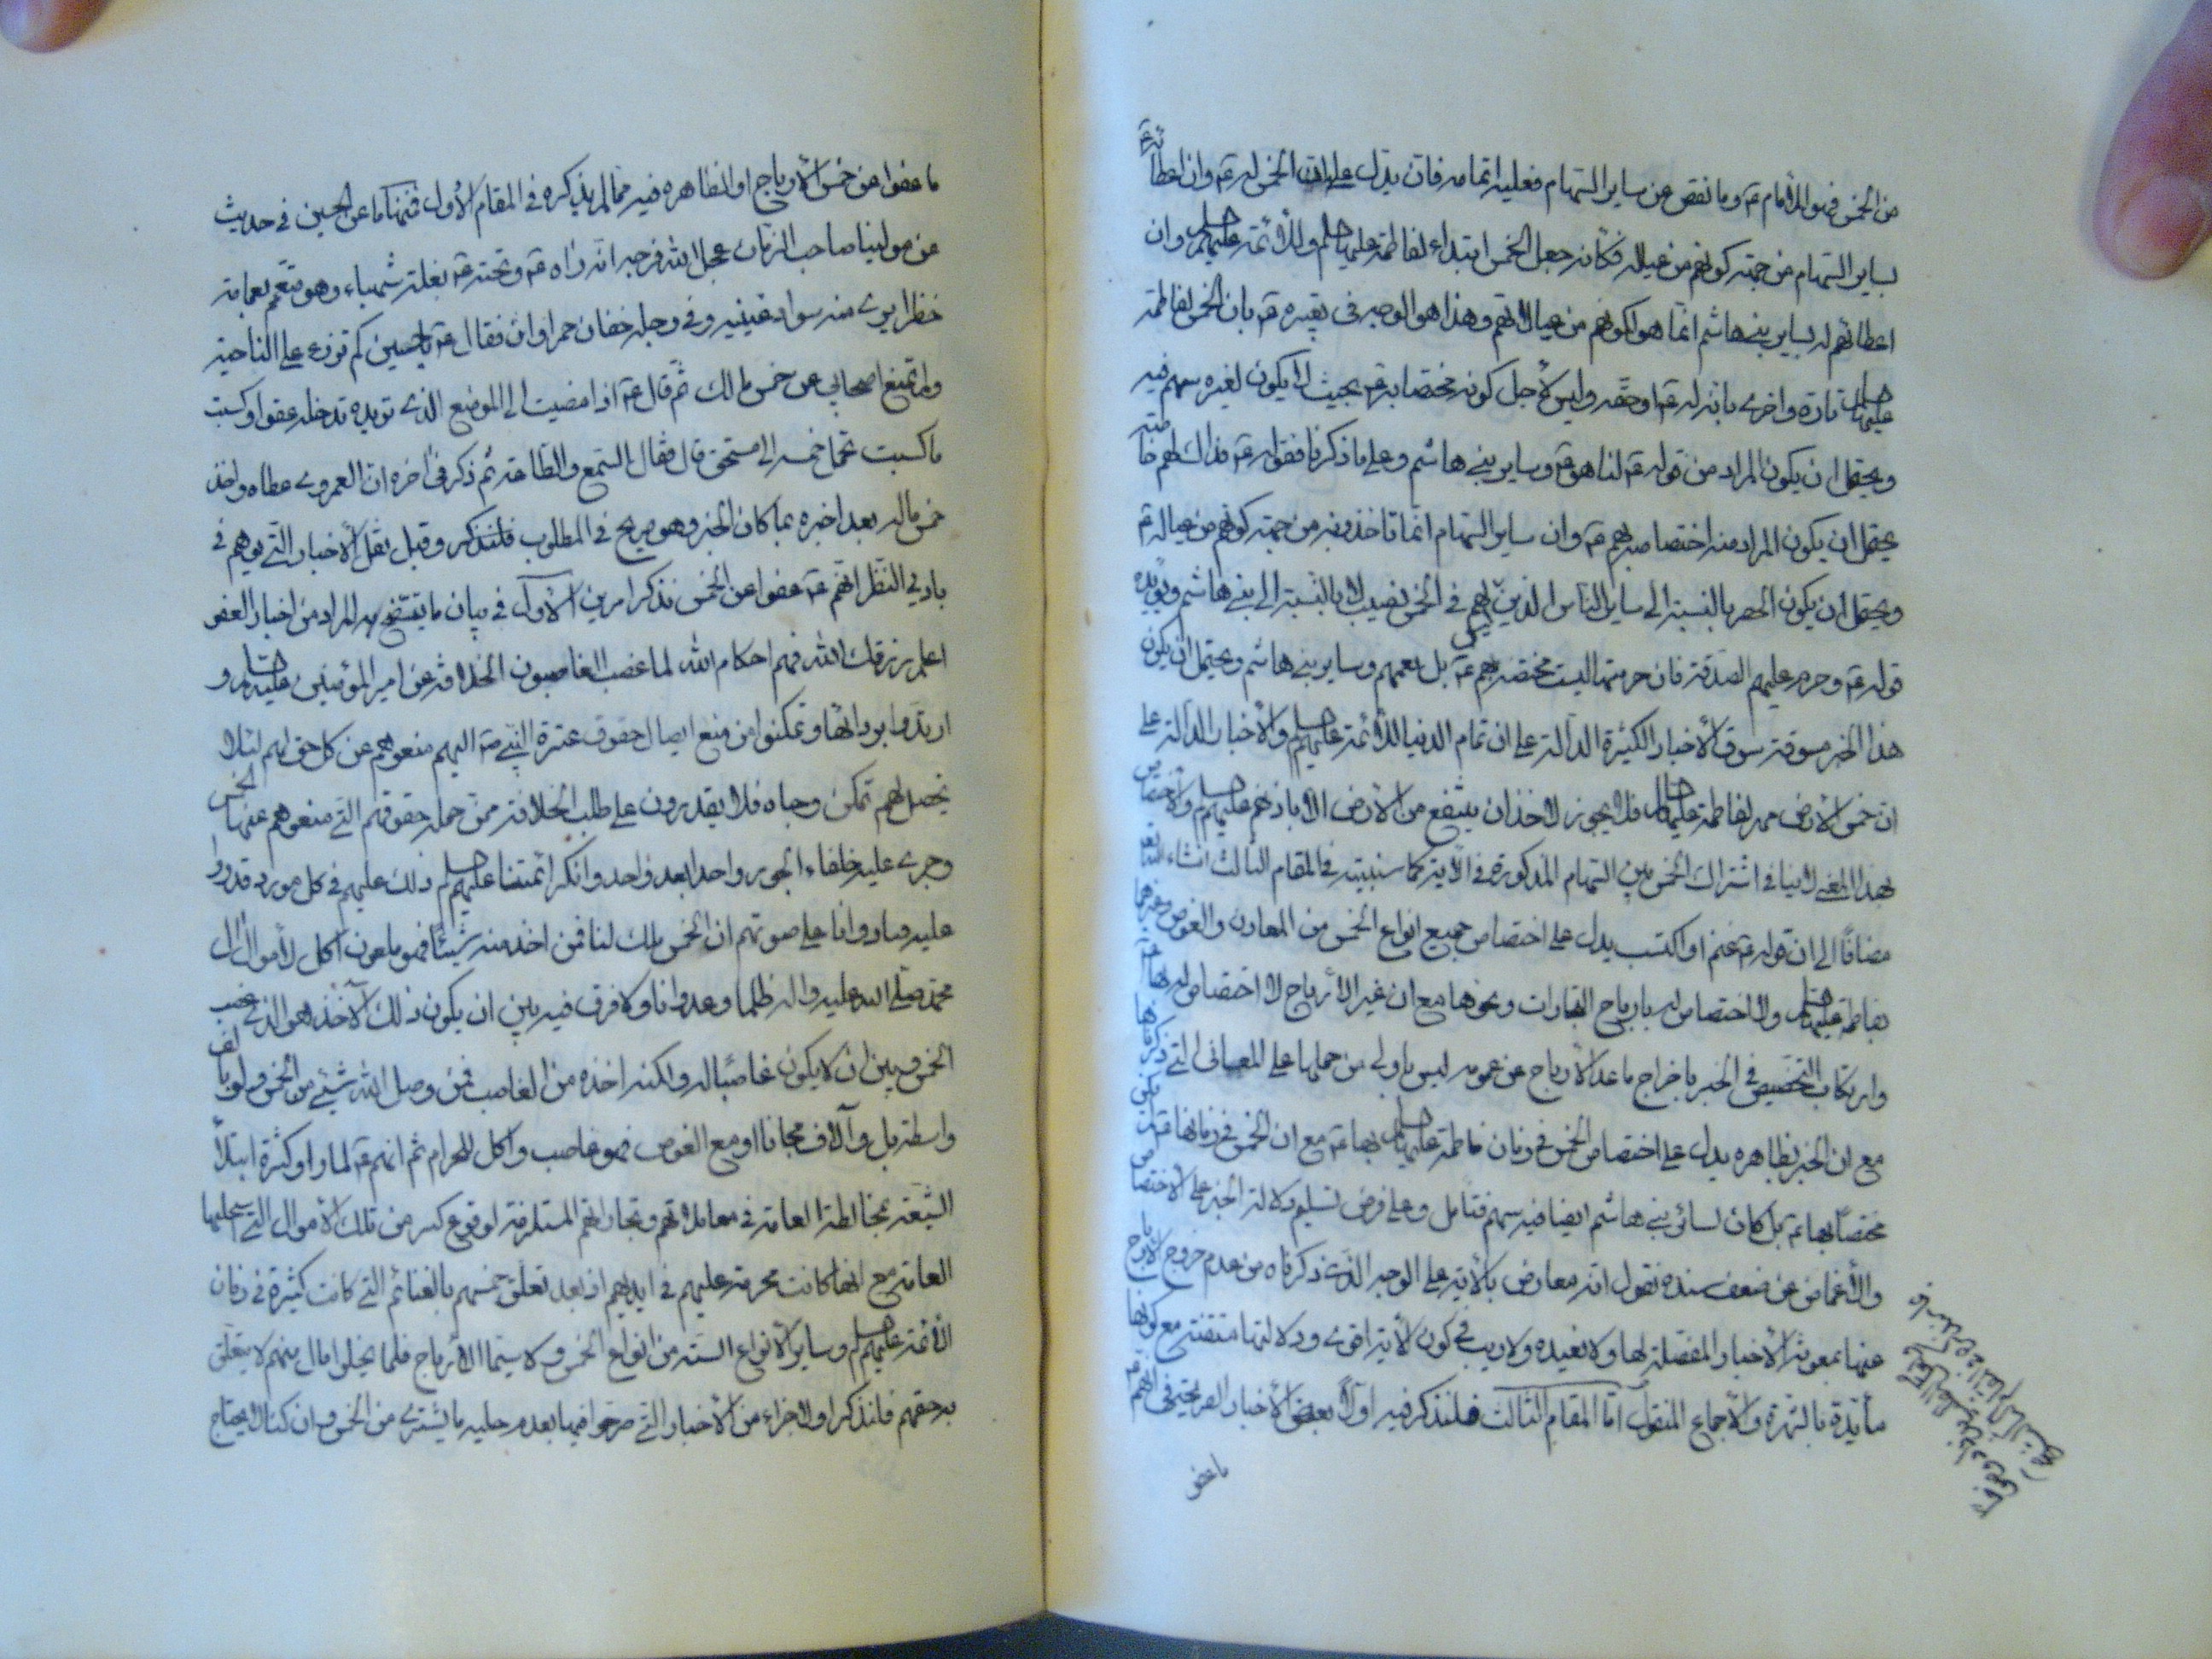 من الخمس فهو للامام ع وما نقص عن ساير السهام فعليه اتمامه فان يدل على ان الخمس له ع وان اعطائه
لساير السهام من جهة كونهم من عياله فكانه جعل الخمس ابتداء لفاطمة عليها سلم وللائمة عليهم سلم وان
اعطائهم لساير بني هاشم انما هو لكونهم من عيالاتهم وهذا هو الوجه في تعبيره ع بان الخمس لفاطمة
عليها سلم تارة واخرى بانه له ع او حقه وليس لاجل كونه مختصا به ع بحيث لا يكون لغيره سهم فيه
ويحتمل ان يكون المراد من قوله ع لنا هو ع وساير بني هاشم وعلى ما ذكرنا فقوله ع فذاك لهم خاصة
يحتمل ان يكون المراد منه اختصاصه بهم ع وان ساير السهام انما تاخذونه من جهة كونهم من عياله ع
ويحتمل ان يكون الحصر بالنسبة الى ساير الناس الذين ليس لهم في الخمس نصيب لا بالنسبة الى بني هاشم ويؤيده
قوله ع وحرم عليهم الصدقة فان حرمتها ليست مختصة بهم ع بل تعمهم وساير بني هاشم ويحتمل ان يكون
هذا الخبر مسوقة سوق الاخبار الكثيرة الدالة على ان تمام الدنيا للائمة عليهم سلم والاخبار الدالة على
ان خمس الارض مهر لفاطمة عليها سلم فلا يجوز لاحد ان ينتفع من الارض الا باذنهم عليهم سلم والاختصاص
بهذا المعنى لا ينافي اشتراك الخمس بين السهام المذكورة في الاية كما سنبينه في المقام الثالث انشاء الله تع
مضافا الى ان قوله ع غنم او اكتسب يدل على اختصاص جميع انواع الخمس من المعادن والغوص وغيرها
بفاطمة عليها سلم ولا اختصاص له بارباح التجارات ونحوها مع ان غير الارباح لا اختصاص له بها ع
وارتكاب التخصيص في الخبر باخراج ما عدا الارباح عن عمومه ليس باولى من حملها على المعاني التي ذكرناها
مع ان الخبر بظاهره يدل على اختصاص الخمس في زمان فاطمة عليها سلم بها ع مع ان الخمس في زمانها ع لم يكن
مختصا بها ع بل كان لسائر بني هاشم ايضا فيه سهم فتامل وعلى فرض تسليم دلالة الخبر على الاختصاص
والاغماض عن ضعف سنده نقول انه معارض بالاية على الوجه الذي ذكرناه من عدم خروج الارباح
عنها بمعونة الاخبار المفصلة لها ولا نعيده ولا ريب في كون الاية اقوى ودلالتها متقنة مع كونها
متايدة بالشهرة والاجماع المنقول اما المقام الثالث فلنذكر فيه اولا بعض الاخبار الصريحة في انهم ع
ما عفو
ما عفوا عن خمس الارباح او الظاهرة فيه مما لم يذكره في المقام الاول فمنها ما عن الحسين في حديث
عن مولينا صاحب الزمان عجل الله فرجه انه راه ع وتحته ع بغلة شهباء وهو متعمم بعمامة
خضرا يرى منه سواد عينيه وفي رجله خفان حمراوان فقال ع يا حسين كم تزرء على الناحية
ولم تمنع اصحابي عن خمس مالك ثم قال ع اذا مضيت الى الموضع الذي تريده تدخله عفوا وكسبت
ما كسبت تحمل خمسه الى مستحق قال فقال السمع والطاعة ثم ذكر في اخره ان العمروي عطاه واخذ
خمس ماله بعد اخبره بما كان الخبر وهو صريح في المطلوب فلنذكر وقبل نقل الاخبار التي يوهم في
بادي النظر انهم ع عفوا عن الخمس نذكر امرين الاول في بيان ما يتضح به المراد من اخبار العفو
اعلم رزقك الله فهم احكام الله لما غصب الغاصبون الخلافة عن امير المؤمنين عليه سلم و
ارتدوا بردائها وتمكنوا من منع ايصال حقوق عترة النبي ص اليهم منعوهم عن كل حق لهم لئلا
يحصل لهم تمكن وجاه فلا يقدرون على طلب الخلافة فمن جملة حقوقهم التي منعوهم عنها الخمس
وجرى عليه خلفاء الجور واحدا بعد واحد وانكر ائمتنا عليهم سلم ذلك عليهم في كل مورد قدروا
عليه ونادوا باعلى صوتهم ان الخمس ملك لنا فمن اخذ منه شيئا فهو ملعون اكل لاموال ال
محمد صلى الله عليه واله ظلما وعدوانا ولا فرق فيه بين ان يكون ذلك الآخذ هو الذي غصب
الخمس وبين ان لا يكون غاصبا له ولكنه اخذه من الغاصب فمن وصل اليه شيئ من الخمس ولو بالف
واسطة بل وآلاف مجانا او مع العوض فهو غاصب واكل للحرام ثم انهم ع لما راوا كثرة ابتلاء
الشيعة بمخالطة العامة في معاملاتهم وتجاراتهم المستلزمة لوقوع كسر من تلك الاموال التي يستحلها
العامة مع انها كانت محرمة عليهم في ايديهم اذ بعد تعلق خمسهم بالغنائم التي كانت كثيرة في زمان
الائمة عليهم سلم وساير الانواع الستة من انواع الخمس ولا سيما الارباح فلما يخلوا مال منهم لا يتعلق
به حقهم فلنذكر اولا جزاء من الاخبار التي صرحوا فيها بعدم حلية ما يشترى من الخمس وان كنا لا نحتاج